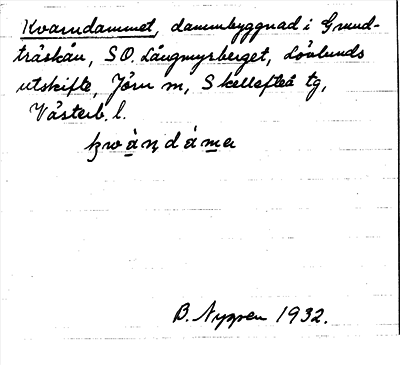 Kvarndammet, dammbyggnad i Grund-
träskån, SO. Långmyrberget, Lövlunds
utskifte, Jörn sn, Skellefteå tg,
Västerb. l.
B. Nygren 1932.